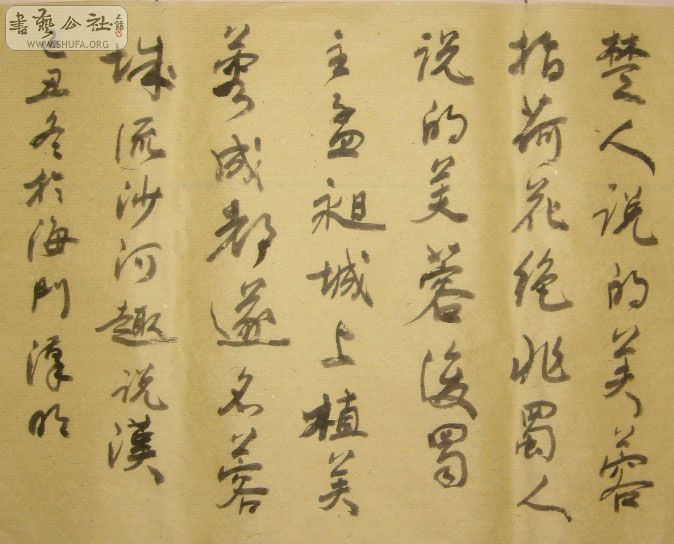 楚人说的芙蓉
指荷花绝非蜀人
说的芙蓉後蜀
主孟昶城上植芙
蓉成都遂名蓉
城流沙河趣说漢
己丑冬於海門
書藝公社
WWW.SHUFA.ORG